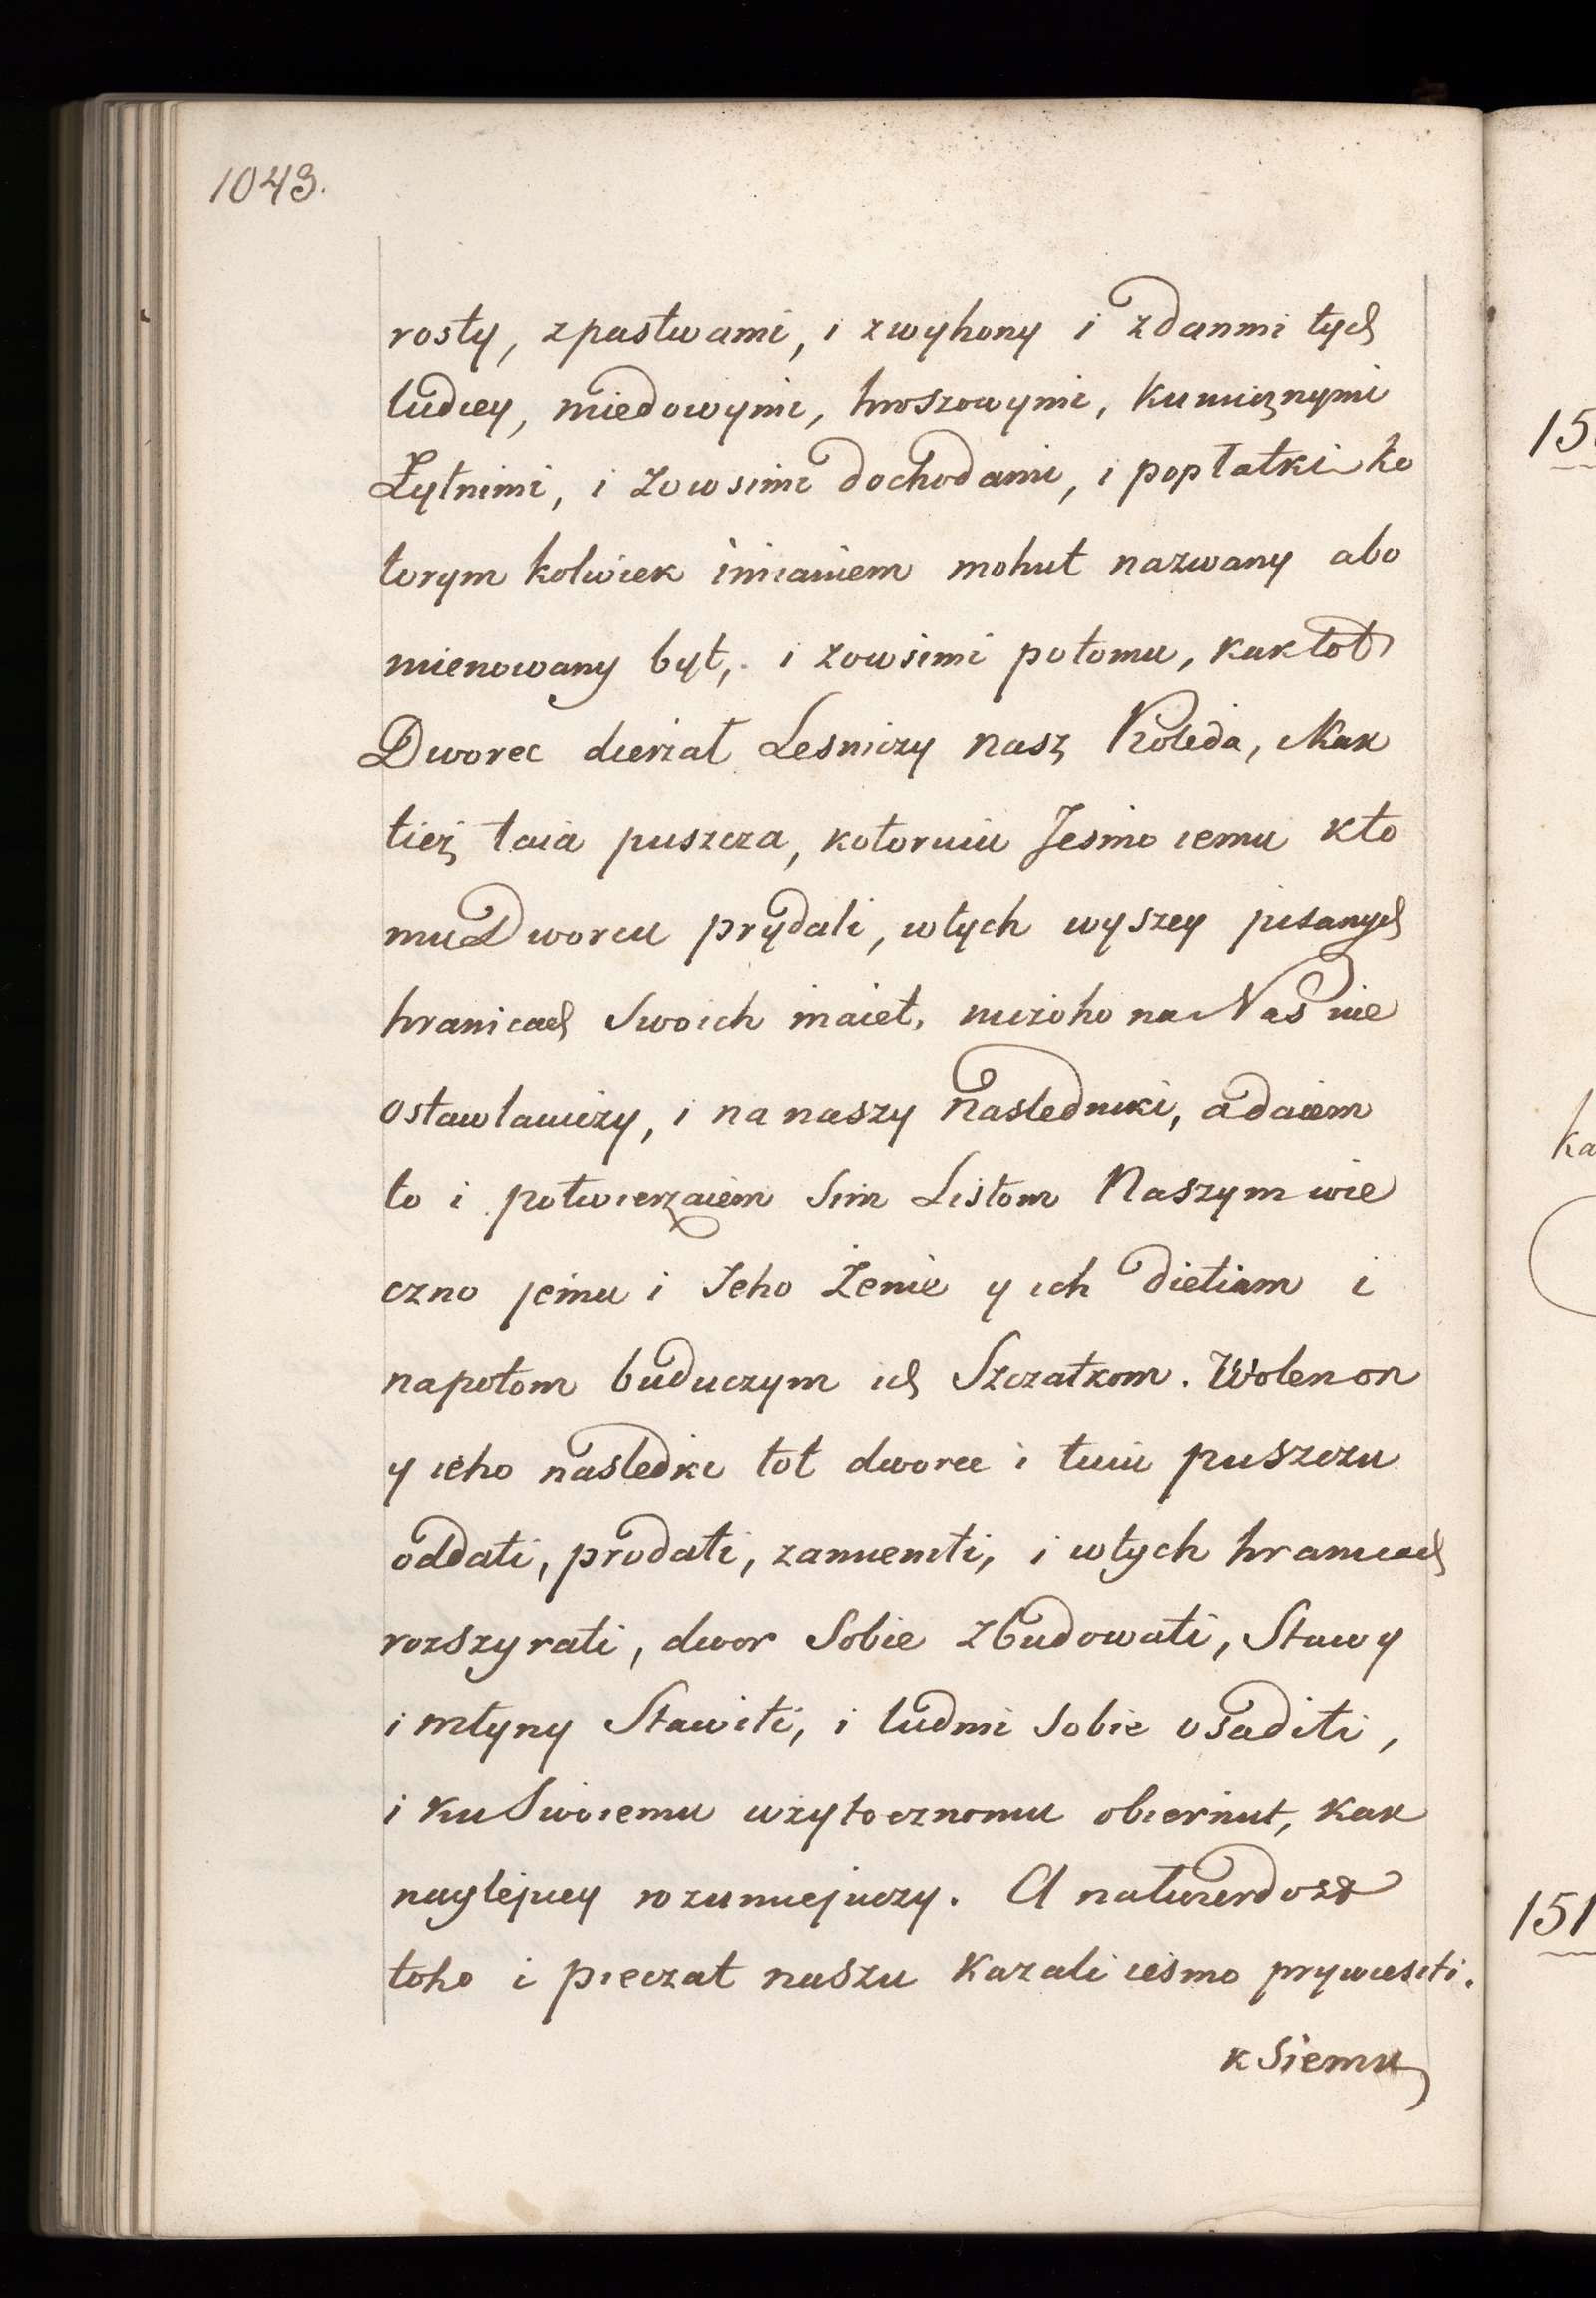 1043.
rosty, zpastwami, i zwyhony i zdanmi tych
ludiey, miedowymi, hroszowymi, kunicznymi
Żytnimi, i zowsimi dochodami, i popłatki ko
torym kolwiek imianiem mohut nazwany abo
mienowany byt, i zowsimi potomu, kak tot
Dworec dierżał Leśniczy nasz Kolęda, Nak
tież taia puszcza, kotoruiu Jesmo iemu kto
mu Dworcu prydali, wtych wyszey pisanych
hranicach Swoich maiet, niczoho na Nas nie
ostawlaiuczy, i na naszy nasledniki, a daiem
to i potwierzaiem Sim Listom Naszym wie
czno jemu i Jeho Żenie y ich dietiam i
napotom buduczym ich Szczatkom. Wolen on
y ieho nasledki tot dworec i tuiu puszczu
oddati, prodati, zamieniti, i wtych hranicach
rozszyrati, dwor Sobie zbudowati, Stawy
i młyny Stawiti, i ludmi sobie osaditi,
i ku Swoiemu użytocznomu obiernut, kak
naylejpiey rozumiejuczy. A natwierdost
toho i pieczat naszu kazali iesmo prywiesiti.
k Siemu
15
ka
151